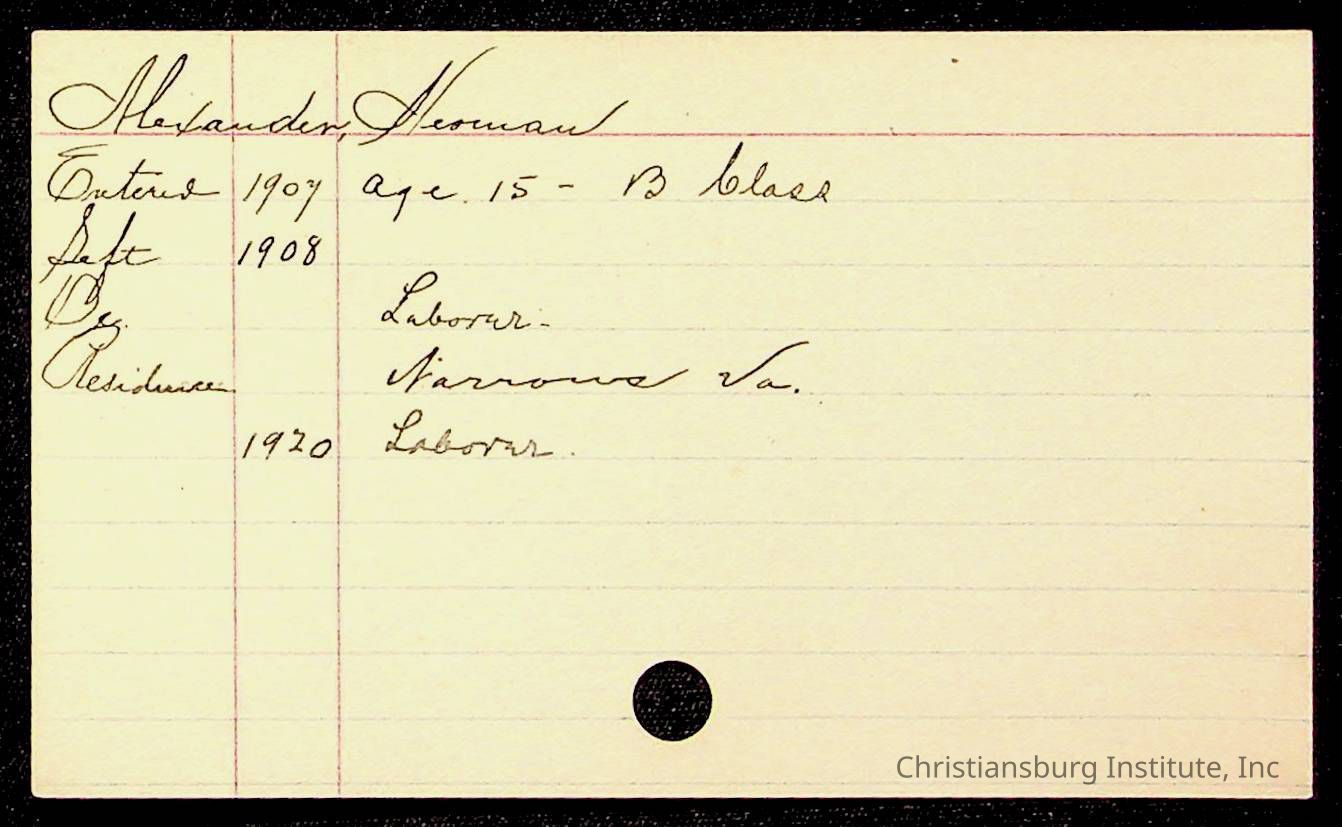 Alexander, Herman
Entered 1907 age. 15 - B Class
Left 1908
Oc. Laborer-
Residence Narrows Va.
1920 Laborer.
Christiansburg Institute, Inc